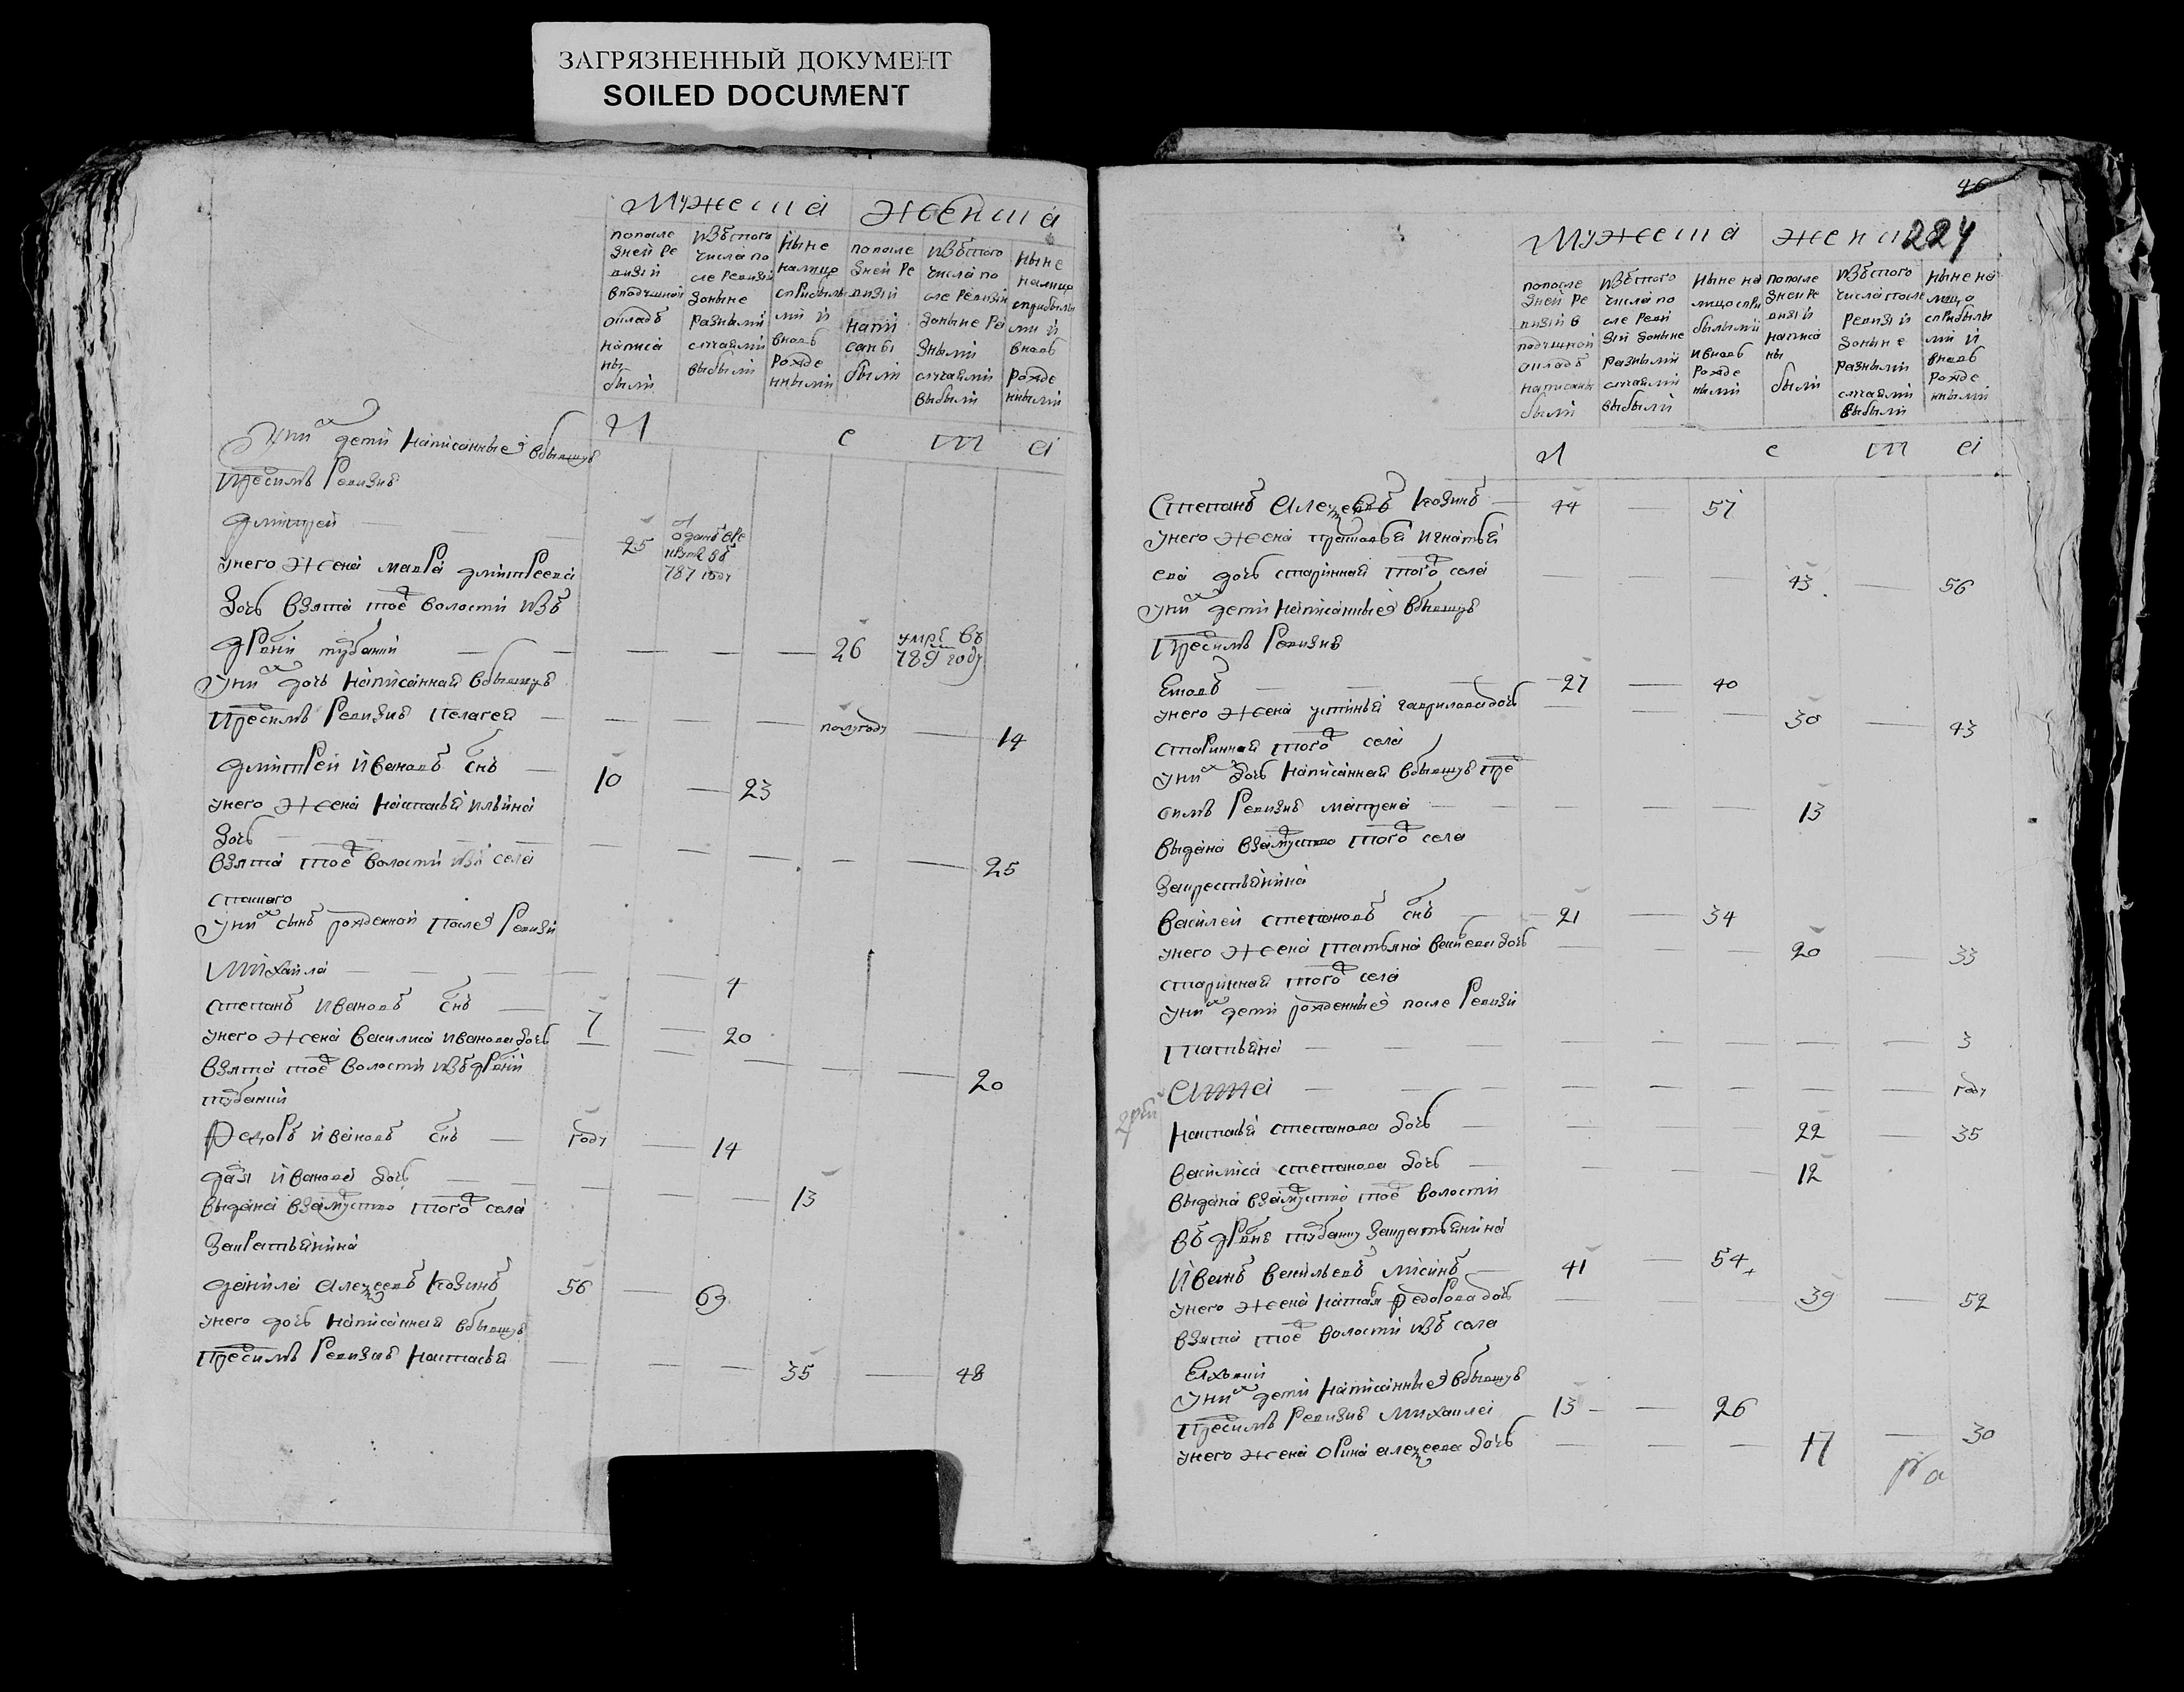 ЗАГРЯЗНЕННЫЙ ДОКУМЕНТ
SOILED DOCUMENT
Мужеска Женска
попосле дней ревизіи вподушной окладъ написаны были
изъ того числа после ревизіи доныне разными случаями выбыли
ныне налицо сприбылыми и вновь рожденными
попосле дней ревизіи написаны были
изъ того числа после ревизіи доныне разными случаями выбыли
ныне налицо сприбылыми и вновь рожденными
Л е т а
уних дети написанные вбывшую
пред симъ ревизию
дмитрей 25 отданъ вре 787 году
унего жена марѳа дмитреева
дочь взята тое волости изъ
дрвни 26 умре въ 789 году
уних дочь написанная вбывшую
пред симъ ревизию пелагея полугоду 14
дмитрей Ивановъ снъ 10 23
унего жена настасья ильина
дочь
взята тое волости из села 25
уних сынъ рожденной после ревизіи
михаила 4
степанъ ивановъ снъ 7 20
унего жена василиса иванова дочь
взята тое волости изъ дрвни 20
Ѳедоръ ивановъ снъ году 14
иванова дочь 13
выдана взамуство того села
закрестьянина
данила Алексеевъ Козинъ 56 69
унего дочь написанная вбывшую
пред симъ ревизию настасья 35 48
46
224
Мужеска женска
попосле дней ревизіи в подушной окладъ написаны были
изъ того числа после ревизіи доныне разными случаями выбыли
ныне налицо сприбылыми и вновь рожденными
попосле дней ревизіи написаны были
изъ того числа после ревизіи доныне разными случаями выбыли
ныне налицо сприбылыми и вновь рожденными
Л е т а
Степанъ Алексеевъ Козинъ 44 57
унего жена прасковья игнатьева
дочь старинная того села 43 56
уних дети написанные вбывшую
пред симъ ревизию
27 40
унего жена устинья гаврилова дочь 30 43
старинная того села
уних дочь написанная вбывшую пред
симъ ревизию матрена 13
выдана взамуство того села
закрестьянина
василей степановъ снъ 21 34
унего жена татьяна дочь 20 33
старинная того села
уних дети рожденные после ревизіи
татьяна 3
Анна году
настасья степанова дочь 22 35
василиса степанова дочь 12
выдана взамуство тое волости
въ дрвню закрестьянина
Иванъ васильевъ 41 54
унего жена Ѳедорова дочь 39 52
взята тое волости изъ села
уних дети написанные вбывшую
пред симъ ревизию михаила 13 26
унего жена орина алексеева дочь 17 30